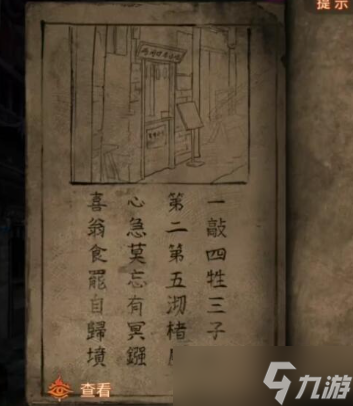 提示
一敲四牲三子
第二第五沏楮
心急莫忘有冥鏹
喜翁食罷自歸墳
查看
九游